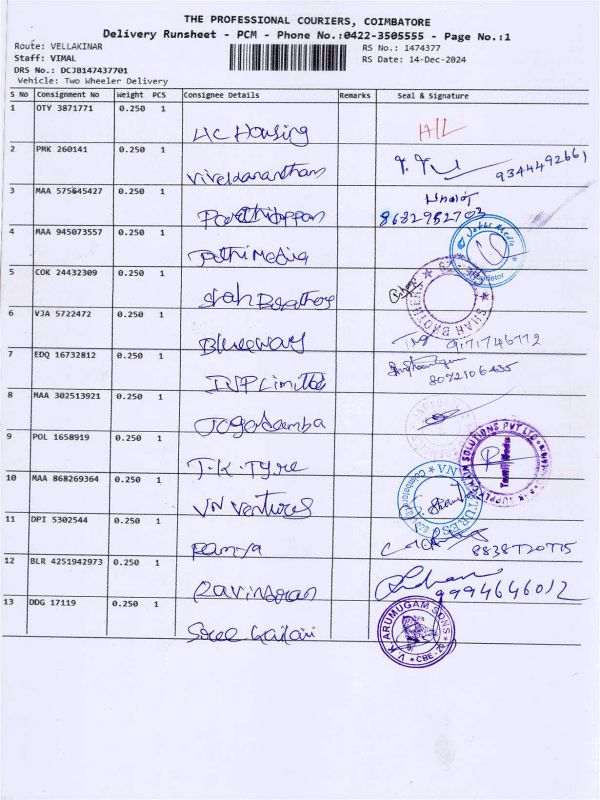 THE PROFESSIONAL COURIERS, COIMBATORE
Delivery Runsheet - PCM - Phone No.:0422-3505555 - Page No.:1
Route: VELLAKINAR
RS No.: 1474377
Staff: VIMAL
RS Date: 14-Dec-2024
DRS No.: DCJB147437701
Vehicle: Two Wheeler Delivery
S No Consignment No Weight PCS Consignee Details Remarks Seal & Signature
1 OTY 3871771 0.250 1
LIC Housing
2 PMK 260141 0.250 1
Vivekanantham 9344492661
3 MAA 575645427 0.250 1
Parthippan 8682952703
4 MAA 945073557 0.250 1
Jothi Media
Jothi Media
Proprietor
5 COK 24432309 0.250 1
Shah Brothers
SHAH BROTHERS
6 VJA 5722472 0.250 1
Blueway 9171746772
7 EDQ 16732812 0.250 1
INP Limited 8072506435
8 MAA 302513921 0.250 1
Jogadamba
9 POL 1658919 0.250 1
T.K.Tyre
SOLUTIONS PVT LTD
10 MAA 868269364 0.250 1
VN Ventures
VN
Coimbatore
11 DPI 5302544 0.250 1
Ramya 8838720775
12 BLR 4251942973 0.250 1
Ravindran 9994646012
13 DDG 17119 0.250 1
V K ARUMUGAM SONS
CBE